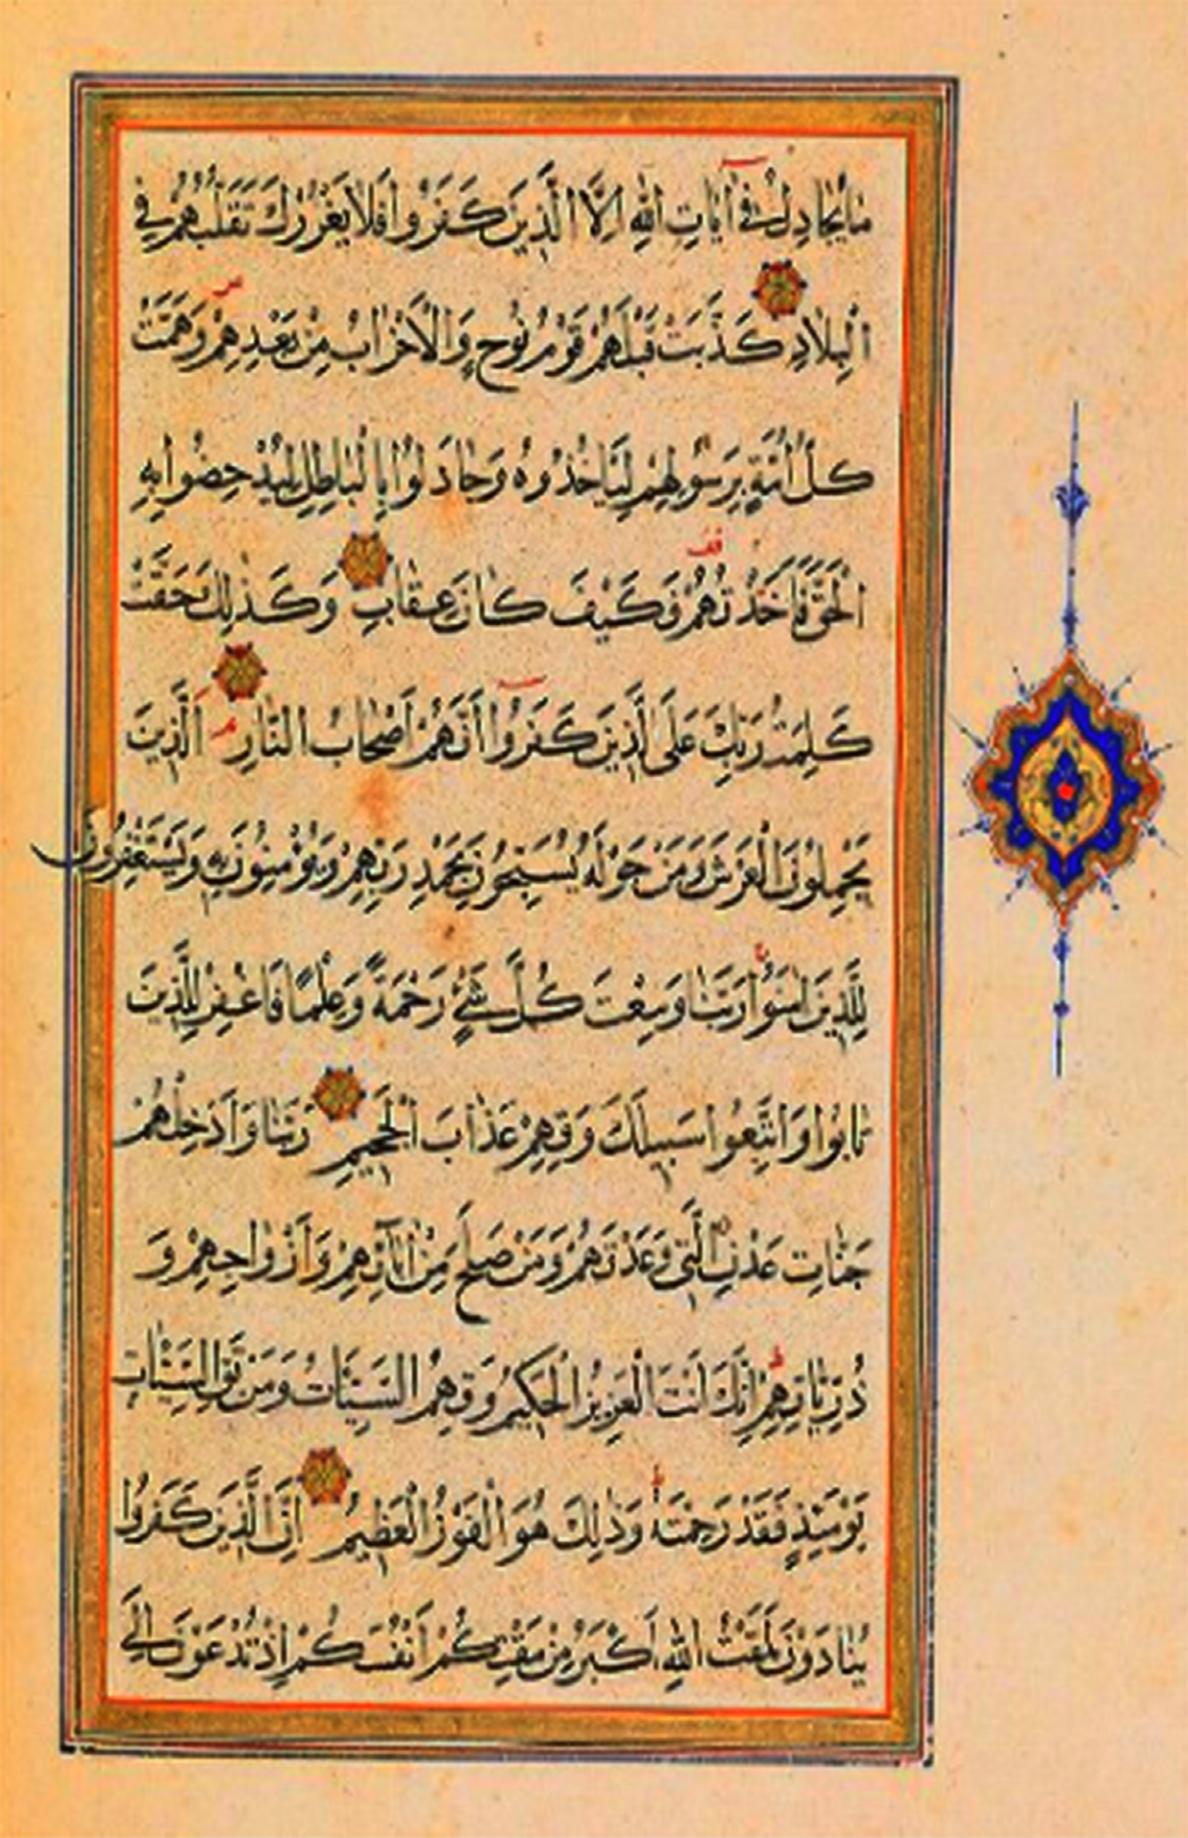 مَا يُجَادِلُ فِي آيَاتِ اللَّهِ إِلَّا الَّذِينَ كَفَرُوا فَلَا يَغْرُرْكَ تَقَلُّبُهُمْ فِي
الْبِلَادِ كَذَّبَتْ قَبْلَهُمْ قَوْمُ نُوحٍ وَالْأَحْزَابُ مِنْ بَعْدِهِمْ وَهَمَّتْ
كُلُّ أُمَّةٍ بِرَسُولِهِمْ لِيَأْخُذُوهُ وَجَادَلُوا بِالْبَاطِلِ لِيُدْحِضُوا بِهِ
الْحَقَّ فَأَخَذْتُهُمْ فَكَيْفَ كَانَ عِقَابِ وَكَذَلِكَ حَقَّتْ
كَلِمَتُ رَبِّكَ عَلَى الَّذِينَ كَفَرُوا أَنَّهُمْ أَصْحَابُ النَّارِ الَّذِينَ
يَحْمِلُونَ الْعَرْشَ وَمَنْ حَوْلَهُ يُسَبِّحُونَ بِحَمْدِ رَبِّهِمْ وَيُؤْمِنُونَ بِهِ وَيَسْتَغْفِرُونَ
لِلَّذِينَ آمَنُوا رَبَّنَا وَسِعْتَ كُلَّ شَيْءٍ رَحْمَةً وَعِلْمًا فَاغْفِرْ لِلَّذِينَ
تَابُوا وَاتَّبَعُوا سَبِيلَكَ وَقِهِمْ عَذَابَ الْجَحِيمِ رَبَّنَا وَأَدْخِلْهُمْ
جَنَّاتِ عَدْنٍ الَّتِي وَعَدْتَهُمْ وَمَنْ صَلَحَ مِنْ آبَائِهِمْ وَأَزْوَاجِهِمْ وَ
ذُرِّيَّاتِهِمْ إِنَّكَ أَنْتَ الْعَزِيزُ الْحَكِيمُ وَقِهِمُ السَّيِّئَاتِ وَمَنْ تَقِ السَّيِّئَاتِ
يَوْمَئِذٍ فَقَدْ رَحِمْتَهُ وَذَلِكَ هُوَ الْفَوْزُ الْعَظِيمُ إِنَّ الَّذِينَ كَفَرُوا
يُنَادَوْنَ لَمَقْتُ اللَّهِ أَكْبَرُ مِنْ مَقْتِكُمْ أَنْفُسَكُمْ إِذْ تُدْعَوْنَ إِلَى